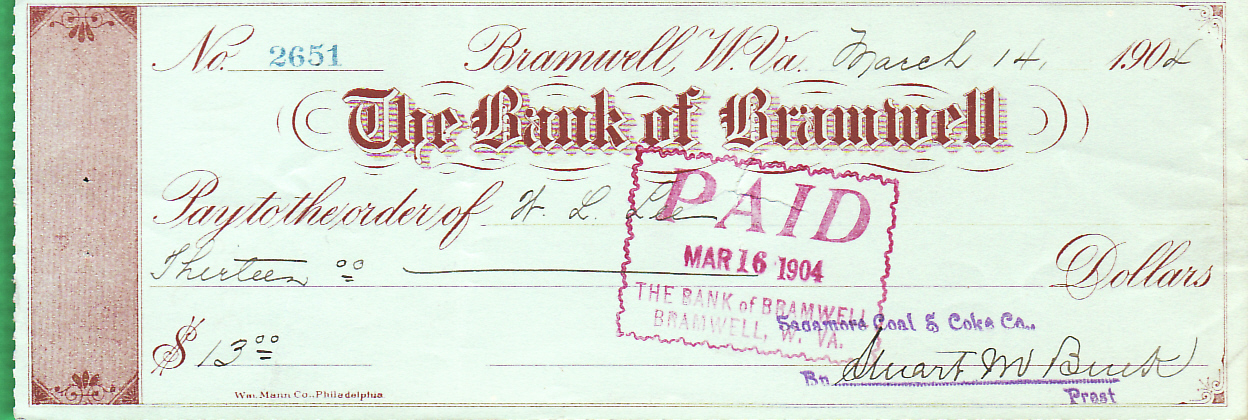 No. 2651 Bramwell, W. Va. March 14, 1904
The Bank of Bramwell
Pay to the order of W. L. Lee
Thirteen 00 Dollars
PAID
MAR 16 1904
THE BANK of BRAMWELL
BRAMWELL, W. VA.
Sagamore Coal & Coke Co.,
$ 13.00
By Stuart M Buck
Prest
Wm. Mann Co., Philadelphia